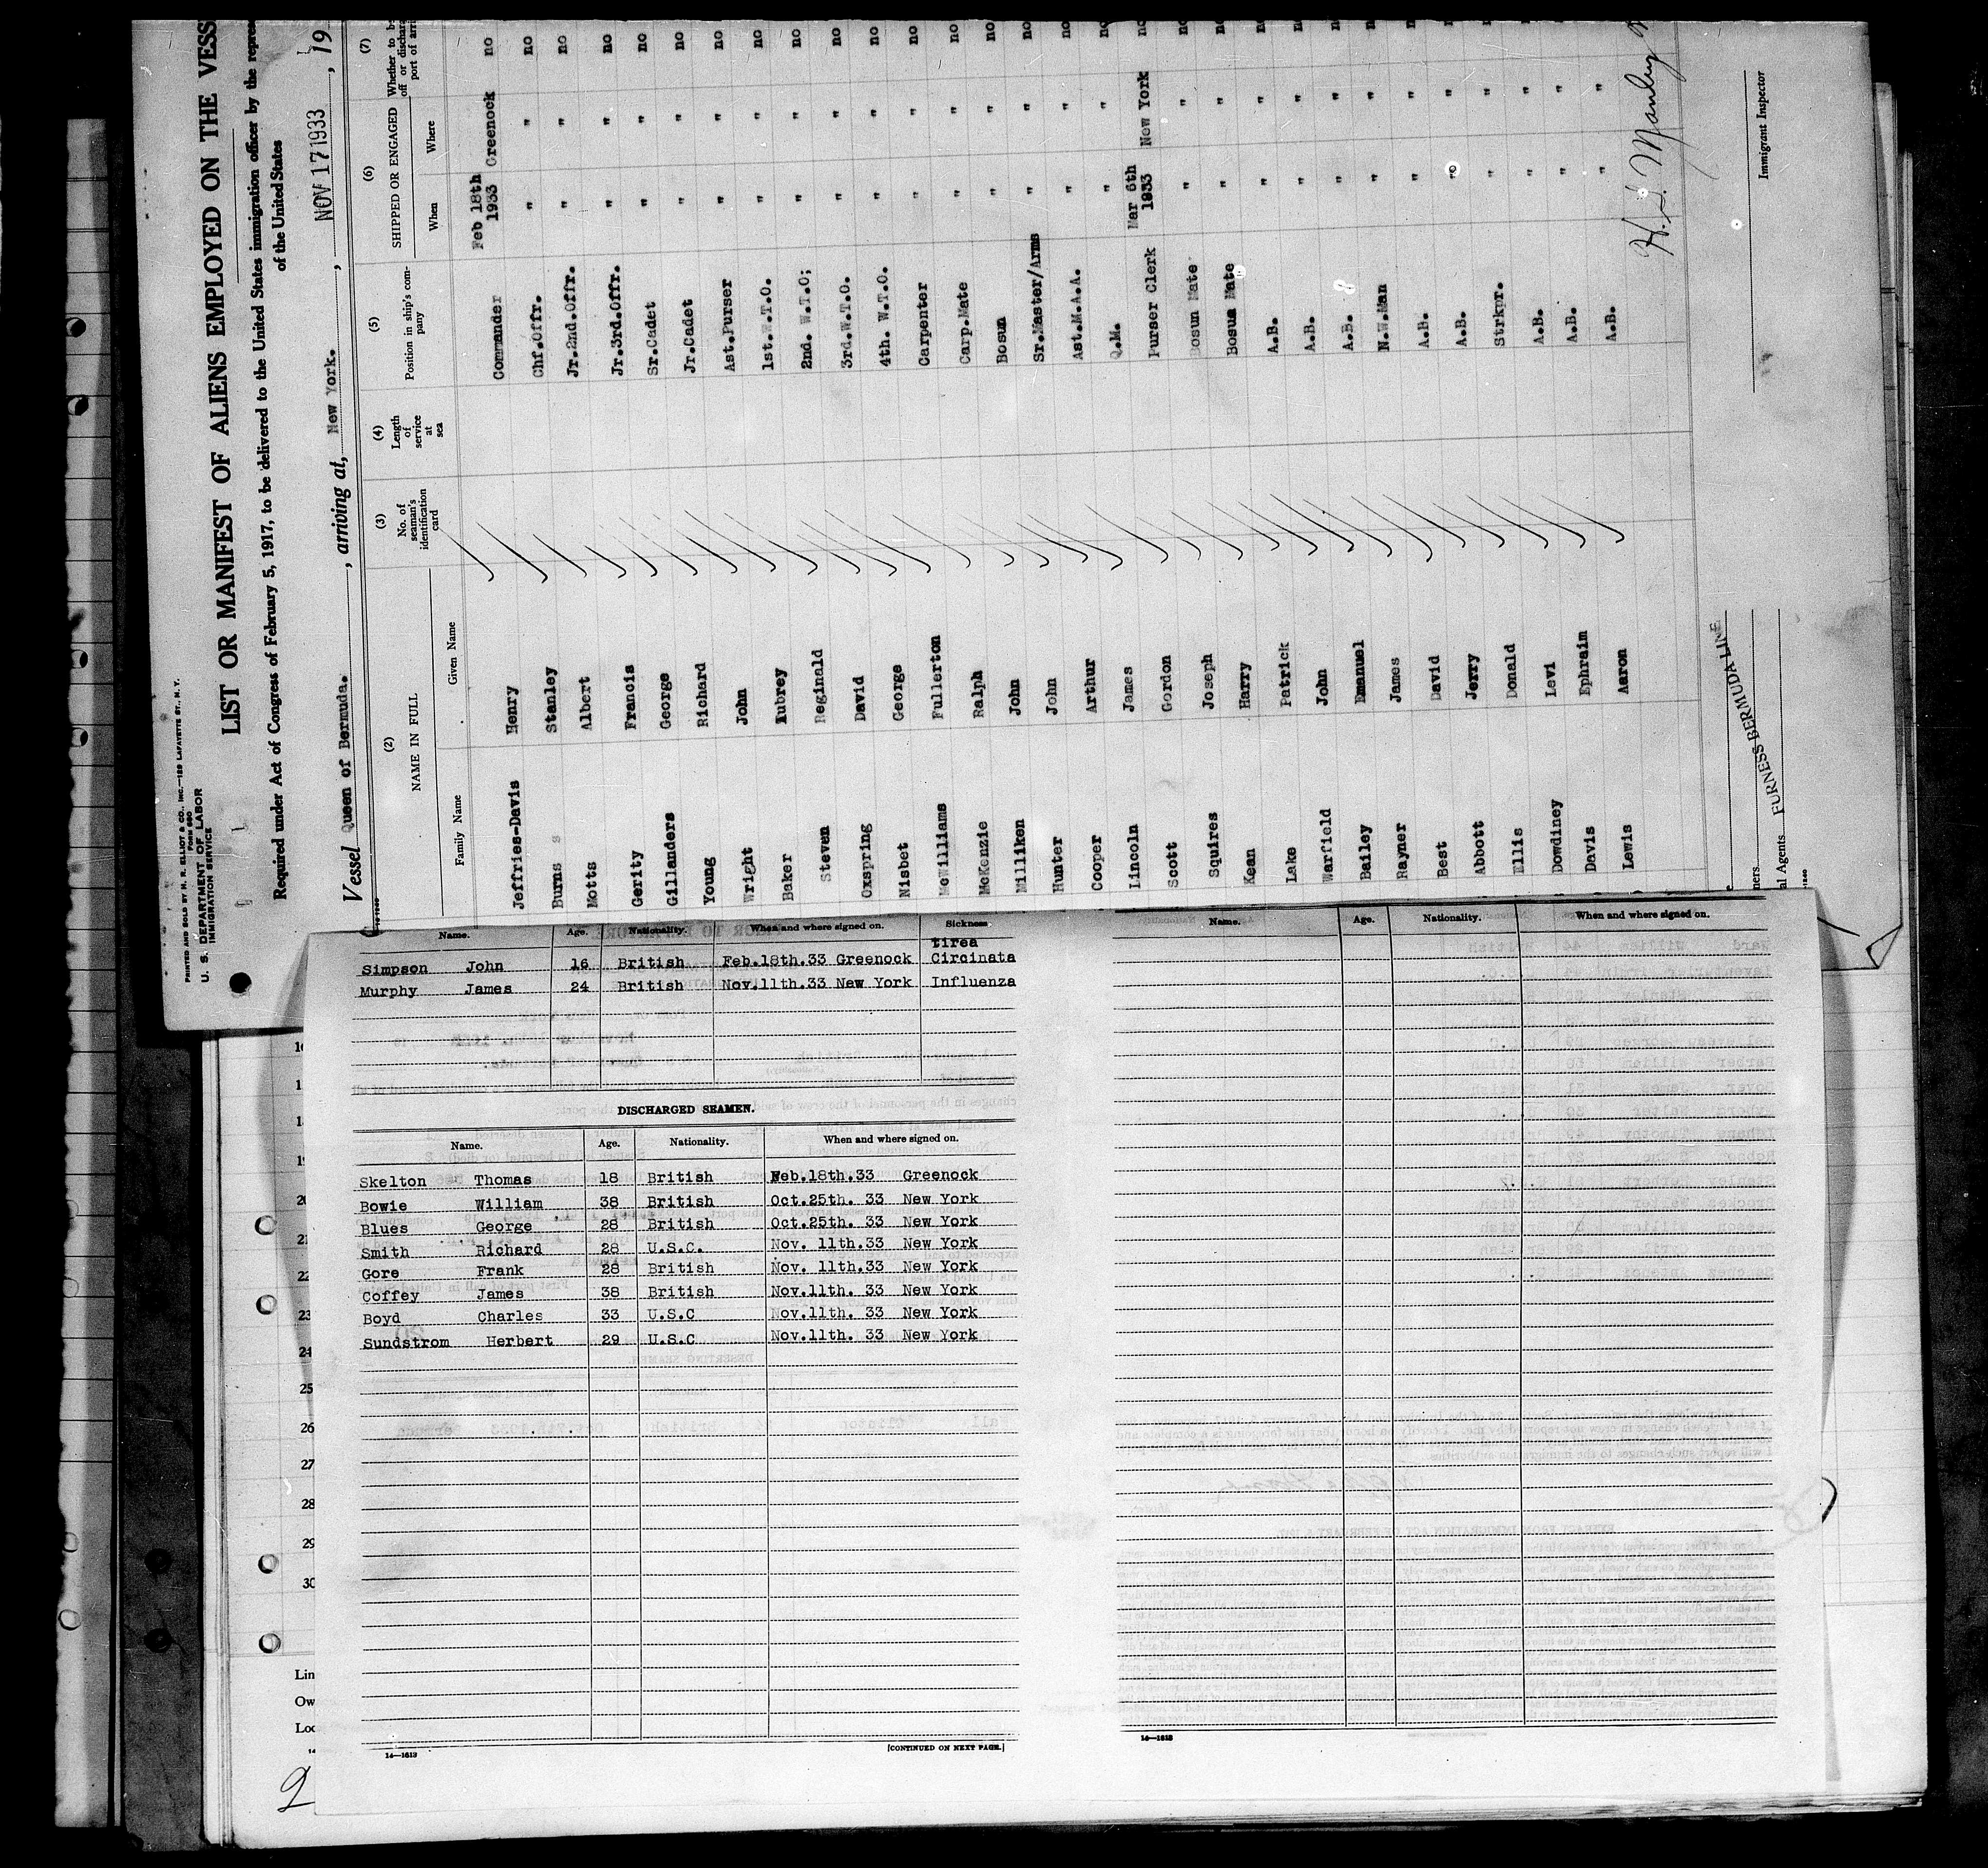 PRINTED AND SOLD BY H. R. ELLIOT & CO., INC.—129 LAFAYETTE ST., N. Y.
FORM 680
U. S. DEPARTMENT OF LABOR
IMMIGRATION SERVICE
LIST OR MANIFEST OF ALIENS EMPLOYED ON THE VESS
Required under Act of Congress of February 5, 1917, to be delivered to the United States immigration officer by the repres
of the United States
Vessel Queen of Bermuda. , arriving at, New York. , NOV 17 1933 , 19
(2) NAME IN FULL (3) No. of seaman's identification card (4) Length of service at sea (5) Position in ship's company (6) SHIPPED OR ENGAGED (7) Whether to b off or dischar port of arri
Family Name Given Name When Where
Jeffries-Davis Henry Commander Feb 18th 1933 Greenock no
Burns s Stanley Chf.Offr. " " no
Motts Albert Jr.2nd.Offr. " " no
Gerity Francis Jr.3rd.Offr. " " no
Gillanders George Sr.Cadet " " no
Young Richard Jr.Cadet " " no
Wright John Ast.Purser " " no
Baker Aubrey 1st.W.T.O. " " no
Steven Reginald 2nd. W.T.O; " " no
Oxspring David 3rd.W.T.O. " " no
Nisbet George 4th. W.T.O. " " no
McWilliams Fullerton Carpenter " " no
McKenzie Ralph Carp.Mate " " no
Milliken John Bosun " " no
Hunter John Sr.Master/Arms " " no
Cooper Arthur Ast.M.A.A. " " no
Lincoln James Q.M. " " no
Scott Gordon Purser Clerk Mar 6th 1933 New York no
Squires Joseph Bosun Mate " " no
Kean Harry Bosun Mate " " no
Lake Patrick A.B. " " no
Warfield John A.B. " " no
Bailey Emanuel A.B. " " no
Rayner James N.W.Man " " no
Best David A.B. " "
Abbott Jerry A.B. " "
Ellis Donald Strkpr. " "
Dowdiney Levi A.B. " "
Davis Ephraim A.B. " "
Lewis Aaron A.B. " "
FURNESS BERMUDA LINE
ners
al Agents FURNESS BERMUDA LINE
Immigrant Inspector
Name. Age. Nationality. When and where signed on. Sickness
tirea
Simpson John 16 British Feb.18th.33 Greenock Circinata
Murphy James 24 British Nov.11th.33 New York Influenza
DISCHARGED SEAMEN.
Name. Age. Nationality. When and where signed on.
Skelton Thomas 18 British Feb.18th.33 Greenock
Bowie William 38 British Oct.25th. 33 New York
Blues George 28 British Oct.25th. 33 New York
Smith Richard 28 U.S.C. Nov. 11th.33 New York
Gore Frank 28 British Nov. 11th.33 New York
Coffey James 38 British Nov.11th. 33 New York
Boyd Charles 33 U.S.C Nov.11th. 33 New York
Sundstrom Herbert 29 U.S.C Nov.11th. 33 New York
14—1613
[CONTINUED ON NEXT PAGE.]
Name. Age. Nationality. When and where signed on.
14—1613
19
20
21
22
23
24
25
26
27
28
29
30
Lin
Ow
Loc
14
2